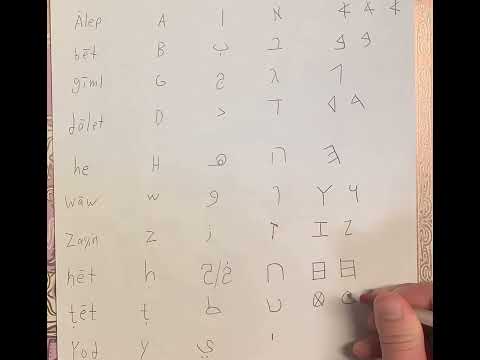 Ālep A ا א 𐤀 𐤀 𐤀
bēt B ب ב 𐤁 𐤁
gīml G ج ג 𐤂
dālet D د ד 𐤃 𐤃
he H ه ה 𐤄
wāw w و ו 𐤅 𐤅
Zayin Z ز ז 𐤆 𐤆
ḥēt ḥ ח 𐤇 𐤇
ṭēt ṭ ط ט 𐤈
Yod Y ي י